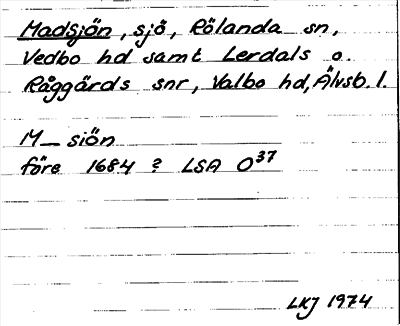 Madsjön, sjö, Rölanda sn,
Vedbo hd samt Lerdals o.
Råggärds snr, Valbo hd, Älvsb. l.
M— siön
före 1684 ? LSA O37
LKJ 1974